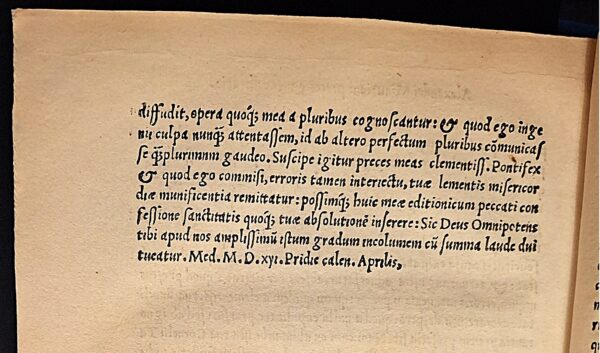 diffudit, opera quoq; mea a pluribus cognoscantur: & quod ego inge
nii culpa nunq̃ attentassem, id ab altero perfectum pluribus cõmunicas
se q̃plurimum gaudeo. Suscipe igitur preces meas clementiss. Pontifex
& quod ego commisi, erroris tamen interiectu, tuæ lementis misericor
diæ munificentia remittatur: possimq; huic meæ editionum peccati con
fessione sanctitatis quoq; tuæ absolutionẽ inserere: Sic Deus Omnipotens
tibi apud nos amplissimũ istum gradum incolumem cũ summa laude diu
tueatur. Med. M. D. xyi. Pridie calen. Aprilis,